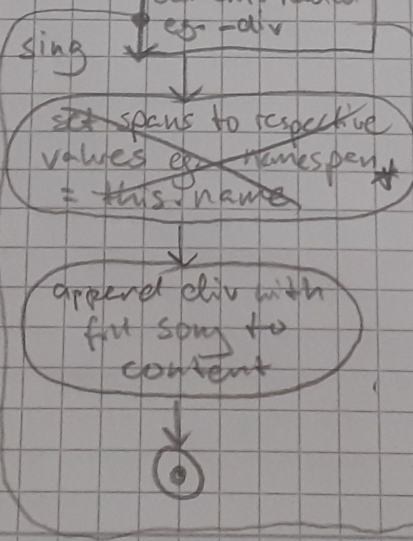 eg. -div
sing
set spans to respective
values eg. namespan
= this.name
append div with
full song to
content